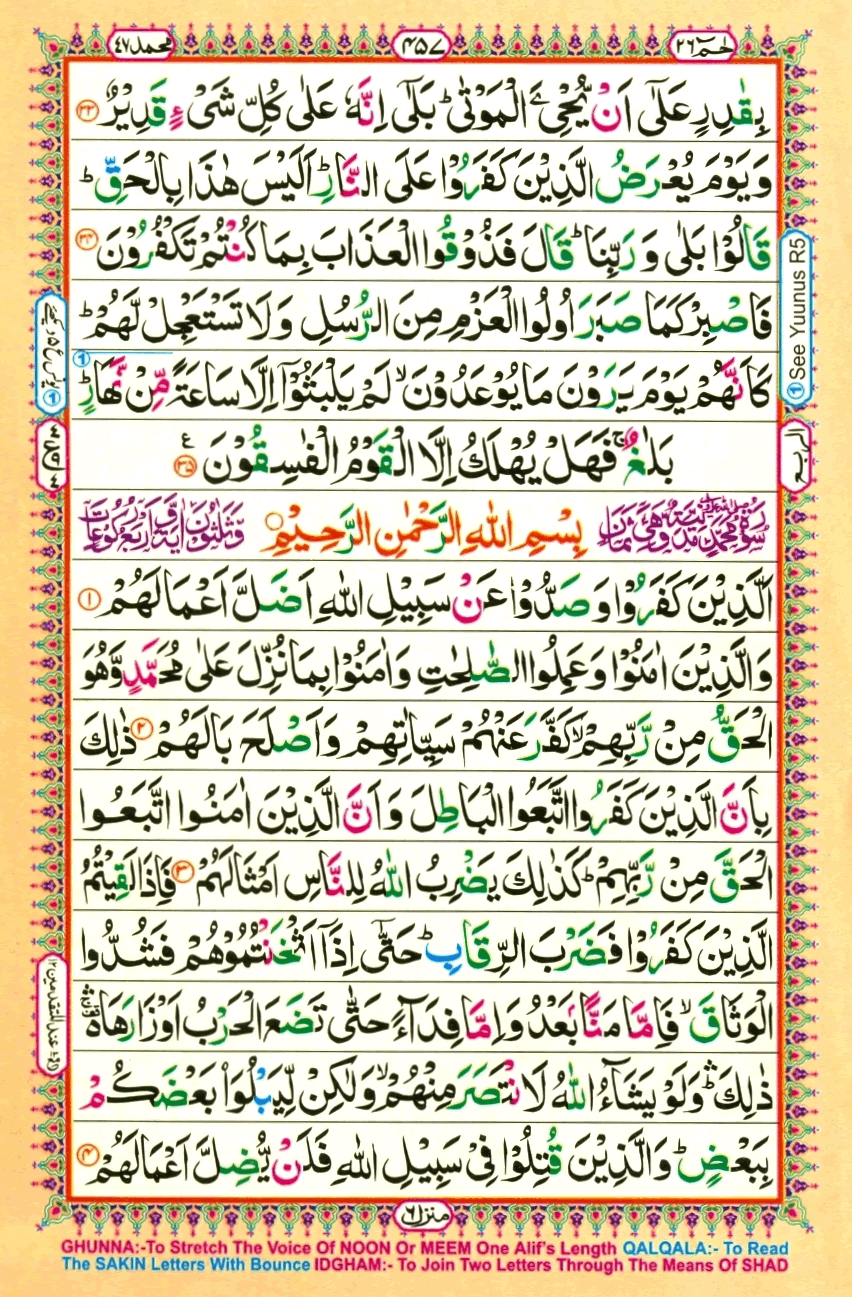 حٰمٓ ٢٦
٤٥٧
محمد ٤٧
بِقٰدِرٍ عَلٰٓى اَنْ يُّحْيِۦَ الْمَوْتٰى ؕ بَلٰٓى اِنَّهٗ عَلٰى كُلِّ شَىْءٍ قَدِيْرٌ ﴿۳۳﴾
وَيَوْمَ يُعْرَضُ الَّذِيْنَ كَفَرُوْا عَلَى النَّارِ ؕ اَلَيْسَ هٰذَا بِالْحَقِّ ؕ
قَالُوْا بَلٰى وَرَبِّنَا ؕ قَالَ فَذُوْقُوا الْعَذَابَ بِمَا كُنْتُمْ تَكْفُرُوْنَ ﴿۳۴﴾
فَاصْبِرْ كَمَا صَبَرَ اُولُوا الْعَزْمِ مِنَ الرُّسُلِ وَلَا تَسْتَعْجِلْ لَّهُمْ ؕ
كَاَنَّهُمْ يَوْمَ يَرَوْنَ مَا يُوْعَدُوْنَ ۙ لَمْ يَلْبَثُوْٓا اِلَّا سَاعَةً مِّنْ نَّهَارٍ ؕ
بَلٰغٌ ۚ فَهَلْ يُهْلَكُ اِلَّا الْقَوْمُ الْفٰسِقُوْنَ ﴿۳۵﴾ ع
بِسْمِ اللهِ الرَّحْمٰنِ الرَّحِيْمِ
اَلَّذِيْنَ كَفَرُوْا وَصَدُّوْا عَنْ سَبِيْلِ اللهِ اَضَلَّ اَعْمَالَهُمْ ﴿۱﴾
وَالَّذِيْنَ اٰمَنُوْا وَعَمِلُوا الصّٰلِحٰتِ وَاٰمَنُوْا بِمَا نُزِّلَ عَلٰى مُحَمَّدٍ وَّهُوَ
الْحَقُّ مِنْ رَّبِّهِمْ ۙ كَفَّرَ عَنْهُمْ سَيِّاٰتِهِمْ وَاَصْلَحَ بَالَهُمْ ﴿۲﴾ ذٰلِكَ
بِاَنَّ الَّذِيْنَ كَفَرُوا اتَّبَعُوا الْبَاطِلَ وَاَنَّ الَّذِيْنَ اٰمَنُوا اتَّبَعُوا
الْحَقَّ مِنْ رَّبِّهِمْ ؕ كَذٰلِكَ يَضْرِبُ اللهُ لِلنَّاسِ اَمْثَالَهُمْ ﴿۳﴾ فَاِذَا لَقِيْتُمُ
الَّذِيْنَ كَفَرُوْا فَضَرْبَ الرِّقَابِ ؕ حَتّٰٓى اِذَآ اَثْخَنْتُمُوْهُمْ فَشُدُّوا
الْوَثَاقَ ۙ فَاِمَّا مَنًّۢا بَعْدُ وَاِمَّا فِدَآءً حَتّٰى تَضَعَ الْحَرْبُ اَوْزَارَهَا
ذٰلِكَ ؕ وَلَوْ يَشَآءُ اللهُ لَانْتَصَرَ مِنْهُمْ ۙ وَلٰكِنْ لِّيَبْلُوَا۟ بَعْضَكُمْ
بِبَعْضٍ ؕ وَالَّذِيْنَ قُتِلُوْا فِيْ سَبِيْلِ اللهِ فَلَنْ يُّضِلَّ اَعْمَالَهُمْ ﴿۴﴾
① See Yuunus R5
الربع
منزل ٦
GHUNNA:-To Stretch The Voice Of NOON Or MEEM One Alif's Length QALQALA:- To Read
The SAKIN Letters With Bounce IDGHAM:- To Join Two Letters Through The Means Of SHAD